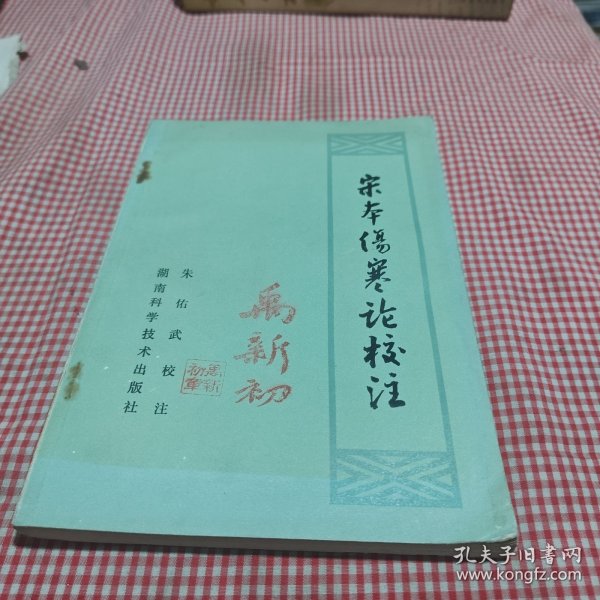 宋本傷寒论校注
禹新初
朱佑武校注
湖南科学技术出版社
孔夫子旧书网
www.kongfz.com